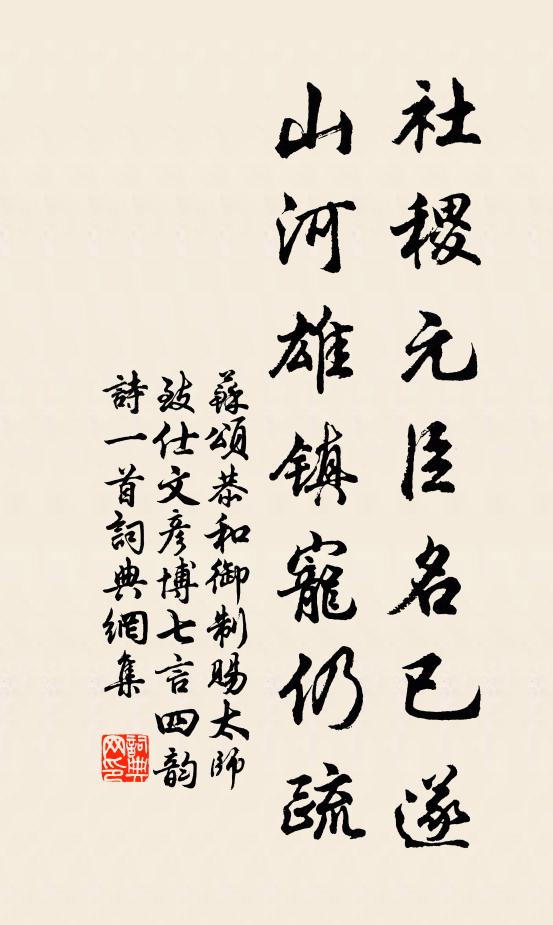 社稷元臣名已遂
山河雄镇寵仍疏
蘇頌恭和御制賜太師
致仕文彦博七言四韵
詩一首詞典網集
詞典网印